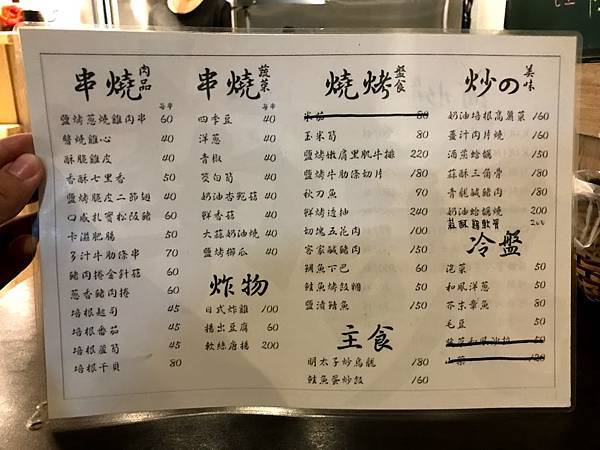 串燒 肉品
每串
鹽烤蔥燒雞肉串 60
醬燒雞心 40
酥脆雞皮 40
香酥七里香 50
鹽烤脆皮二節翅 40
口感扎實松阪豬 60
卡滋肥腸 50
多汁牛肋條串 70
豬肉捲金針菇 60
蔥香豬肉捲 60
培根起司 45
培根番茄 45
培根蘆筍 45
培根干貝 80
串燒 蔬菜
每串
四季豆 40
洋蔥 40
青椒 40
筊白筍 40
奶油杏鮑菇 40
鮮香菇 40
大蒜奶油燒 40
鹽烤櫛瓜 40
炸物
日式炸雞 100
揚出豆腐 60
軟絲唐揚 200
燒烤 盤食
米茄 80
玉米筍 80
鹽烤嫩肩里肌牛排 220
鹽烤牛肋條切片 180
秋刀魚 90
鮮烤透抽 240
切塊五花肉 100
客家鹹豬肉 150
鯛魚下巴 60
鮭魚烤飯糰 50
鹽漬鯖魚 150
主食
明太子炒烏龍 180
鮭魚蛋炒飯 160
炒の 美味
奶油培根高麗菜 160
薑汁肉片燒 160
酒蒸蛤蠣 150
蒜酥三角骨 180
青龍鹹豬肉 180
奶油蛤蠣燒 200
蒜酥雞軟骨 200
冷盤
泡菜 50
和風洋蔥 50
芥末章魚 80
毛豆 50